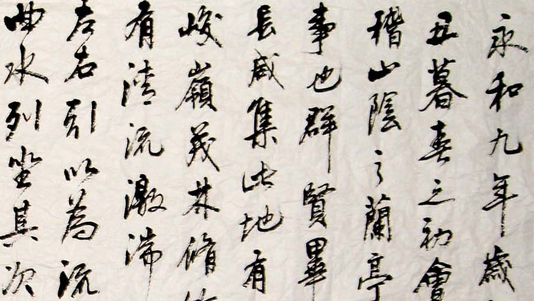 永和九年歲
丑暮春之初會
稽山陰之蘭亭
事也群賢畢
長咸集此地有
峻嶺茂林脩
有清流激湍
左右引以為流
曲水列坐其次